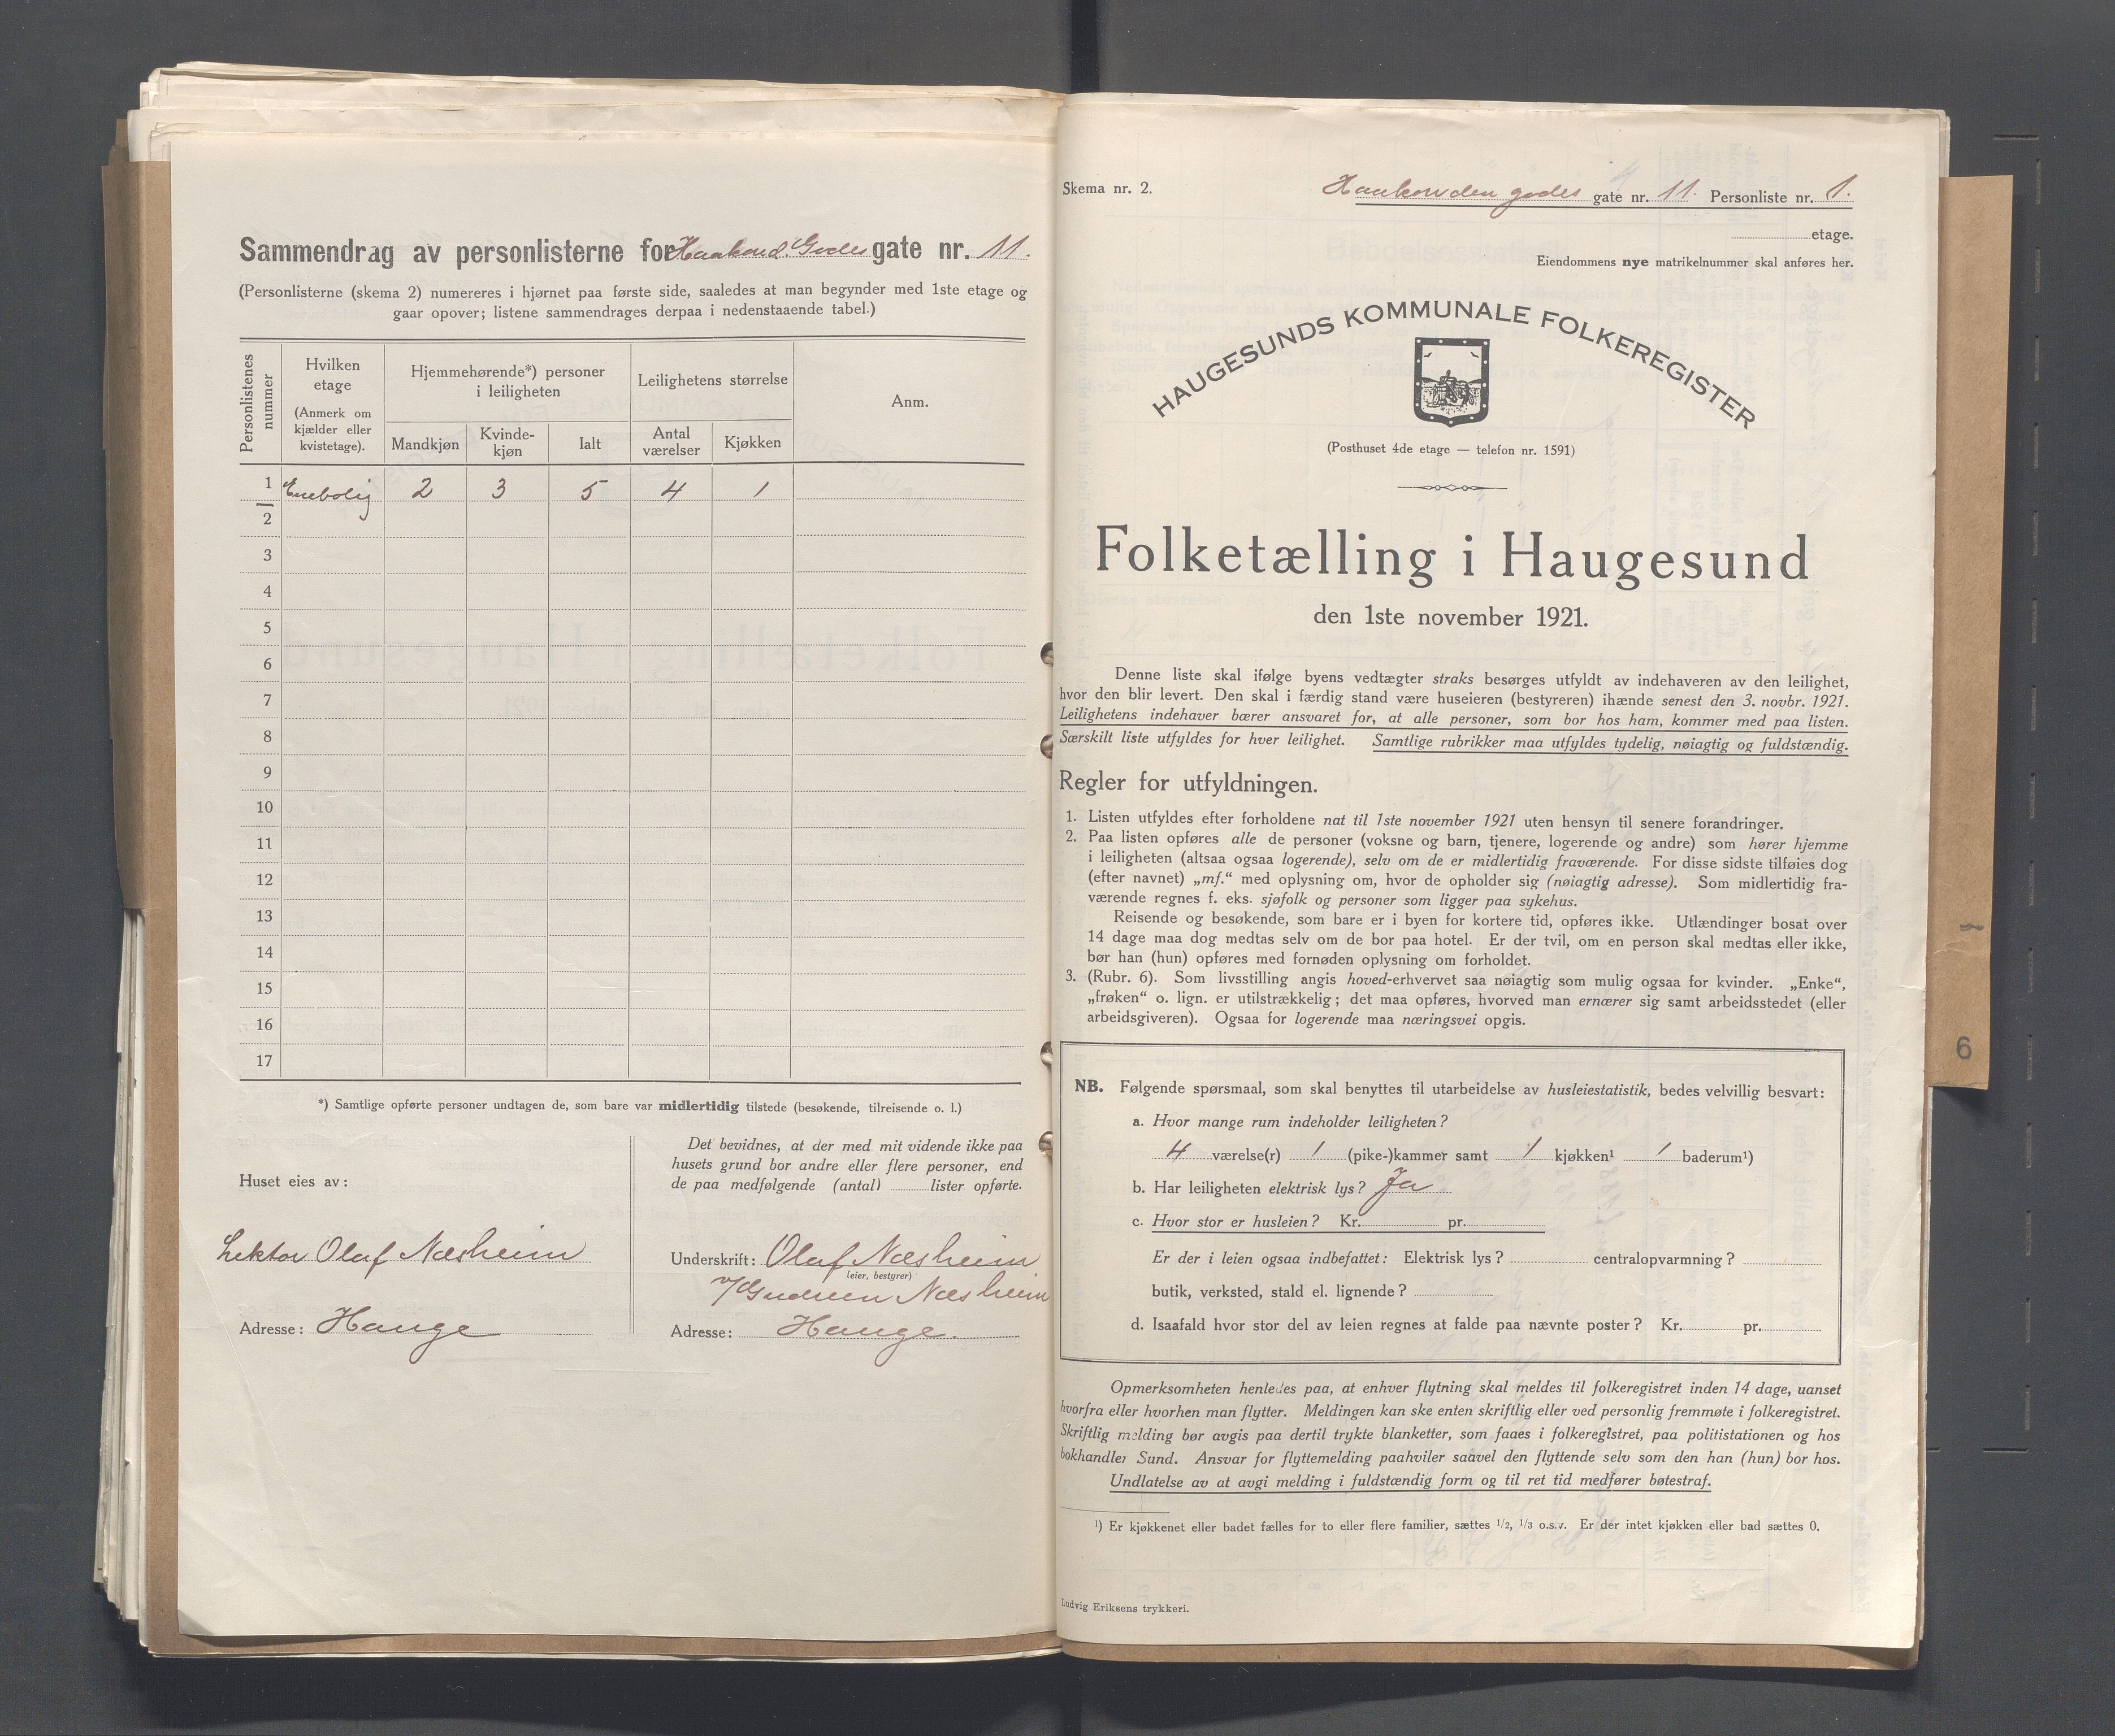 Sammendrag av personlisterne for Haakon d. Godes gate nr. 11.
(Personlisterne (skema 2) numereres i hjørnet paa første side, saaledes at man begynder med 1ste etage og
gaar opover; listene sammendrages derpaa i nedenstaaende tabel.)
Personlistenes nummer
Hvilken etage
(Anmerk om kjælder eller kvistetage).
Hjemmehørende*) personer i leiligheten
Leilighetens størrelse
Anm.
Mandkjøn
Kvinde-kjøn
Ialt
Antal værelser
Kjøkken
1 Enebolig 2 3 5 4 1
2
3
4
5
6
7
8
9
10
11
12
13
14
15
16
17
*) Samtlige opførte personer undtagen de, som bare var midlertidig tilstede (besøkende, tilreisende o. l.)
Huset eies av:
Lektor Olaf Næsheim
Adresse: Hauge
Det bevidnes, at der med mit vidende ikke paa
husets grund bor andre eller flere personer, end
de paa medfølgende (antal) lister opførte.
Underskrift: Olaf Næsheim
(eier, bestyrer)
v/Gudrun Næsheim
Adresse: Hauge.
Skema nr. 2.
Haakon den godes gate nr. 11. Personliste nr. 1.
etage.
Eiendommens nye matrikelnummer skal anføres her.
HAUGESUNDS KOMMUNALE FOLKEREGISTER
(Posthuset 4de etage — telefon nr. 1591)
Folketælling i Haugesund
den 1ste november 1921.
Denne liste skal ifølge byens vedtægter straks besørges utfyldt av indehaveren av den leilighet,
hvor den blir levert. Den skal i færdig stand være huseieren (bestyreren) ihænde senest den 3. novbr. 1921.
Leilighetens indehaver bærer ansvaret for, at alle personer, som bor hos ham, kommer med paa listen.
Særskilt liste utfyldes for hver leilighet. Samtlige rubrikker maa utfyldes tydelig, nøiagtig og fuldstændig.
Regler for utfyldningen.
1. Listen utfyldes efter forholdene nat til 1ste november 1921 uten hensyn til senere forandringer.
2. Paa listen opføres alle de personer (voksne og barn, tjenere, logerende og andre) som hører hjemme
i leiligheten (altsaa ogsaa logerende), selv om de er midlertidig fraværende. For disse sidste tilføies dog
(efter navnet) „mf.“ med oplysning om, hvor de opholder sig (nøiagtig adresse). Som midlertidig fra-
værende regnes f. eks. sjøfolk og personer som ligger paa sykehus.
Reisende og besøkende, som bare er i byen for kortere tid, opføres ikke. Utlændinger bosat over
14 dage maa dog medtas selv om de bor paa hotel. Er der tvil, om en person skal medtas eller ikke,
bør han (hun) opføres med fornøden oplysning om forholdet.
3. (Rubr. 6). Som livsstilling angis hoved-erhvervet saa nøiagtig som mulig ogsaa for kvinder. „Enke“,
„frøken“ o. lign. er utilstrækkelig; det maa opføres, hvorved man ernærer sig samt arbeidsstedet (eller
arbeidsgiveren). Ogsaa for logerende maa næringsvei opgis.
NB. Følgende spørsmaal, som skal benyttes til utarbeidelse av husleiestatistik, bedes velvillig besvart:
a. Hvor mange rum indeholder leiligheten?
4 værelse(r) 1 (pike-)kammer samt 1 kjøkken¹ 1 baderum¹)
b. Har leiligheten elektrisk lys? Ja
c. Hvor stor er husleien? Kr. pr.
Er der i leien ogsaa indbefattet: Elektrisk lys? centralopvarmning?
butik, verksted, stald el. lignende?
d. Isaafald hvor stor del av leien regnes at falde paa nævnte poster? Kr. pr.
Opmerksomheten henledes paa, at enhver flytning skal meldes til folkeregistret inden 14 dage, uanset
hvorfra eller hvorhen man flytter. Meldingen kan ske enten skriftlig eller ved personlig fremmøte i folkeregistret.
Skriftlig melding bør avgis paa dertil trykte blanketter, som faaes i folkeregistret, paa politistationen og hos
bokhandler Sund. Ansvar for flyttemelding paahviler saavel den flyttende selv som den han (hun) bor hos.
Undlatelse av at avgi melding i fuldstændig form og til ret tid medfører bøtestraf.
¹) Er kjøkkenet eller badet fælles for to eller flere familier, sættes 1/2, 1/3 o.s.v. Er der intet kjøkken eller bad sættes 0.
Ludvig Eriksens trykkeri.
6